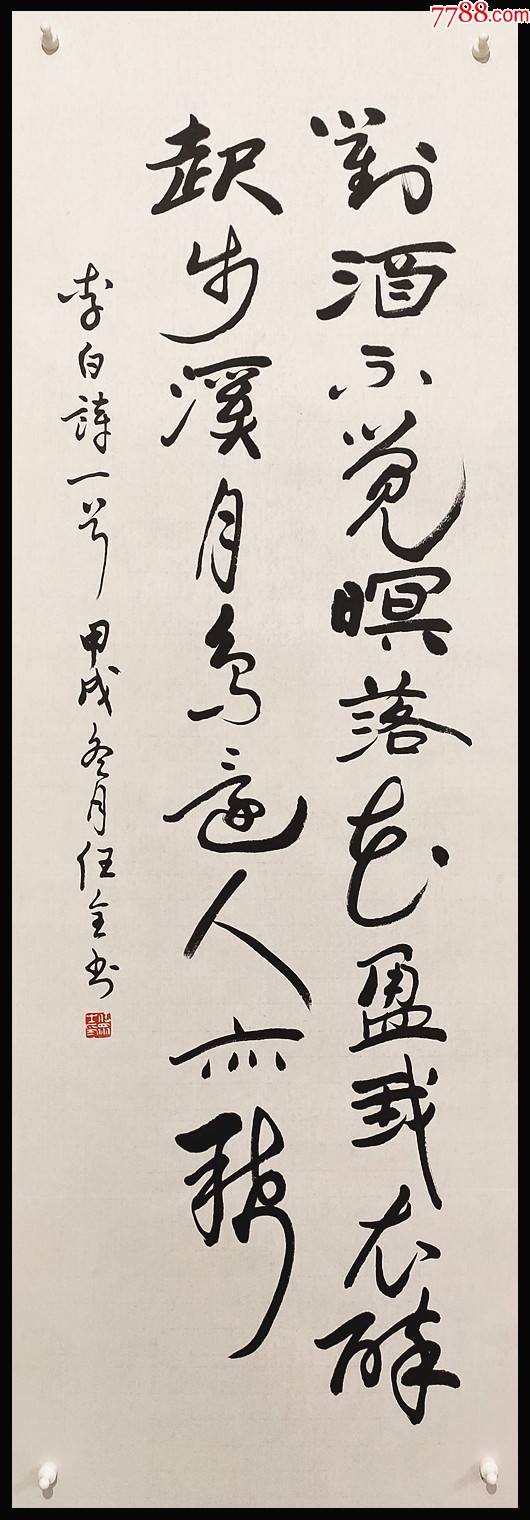 7788.com
對酒不覺暝落花盈我衣醉
起步溪月鳥還人亦稀
李白詩一首 甲戌冬月任全書